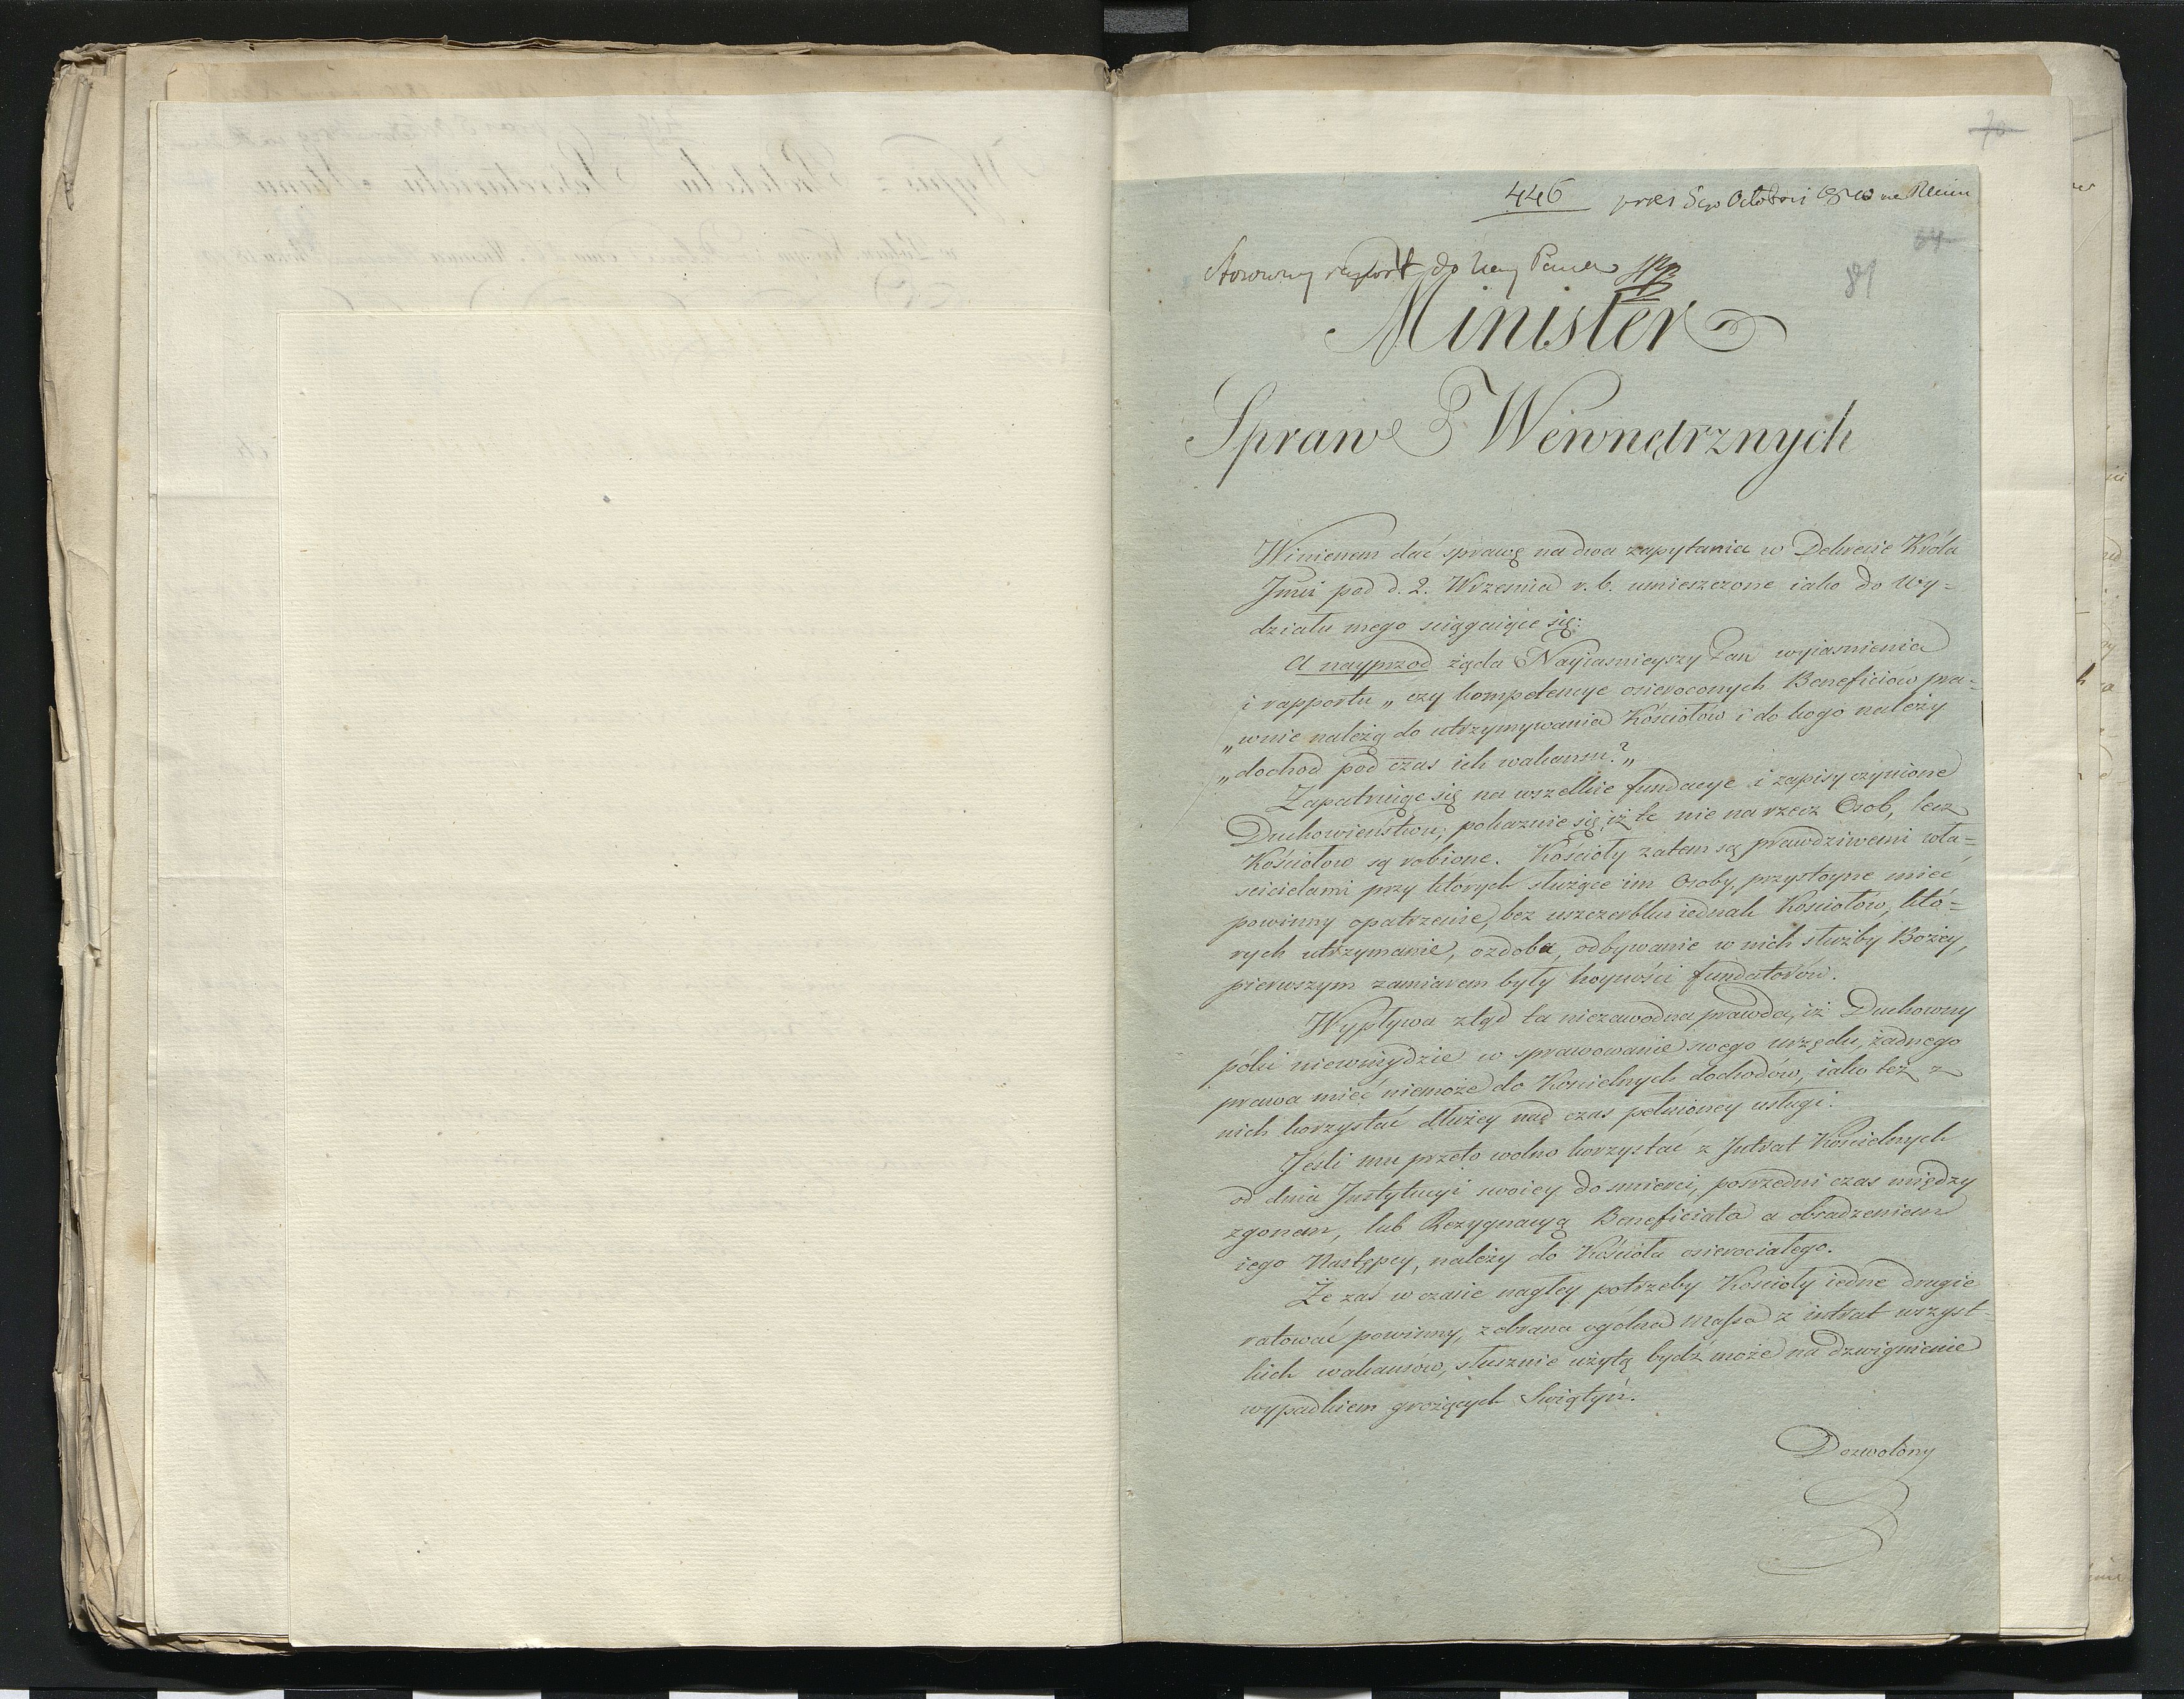 70
446 pres 5 8bris
84
Stosowny raport do Nay Pana
89
Minister
Spraw Wewnętrznych
Winienem dać sprawę na dwa zapytania w Dekrecie Króla
Jmci pod d. 2. Września r. b. umieszczone iako do Wy=
działu mego sciągaiące się:
A nayprzod żąda Nayiasnieyszy Pan wyiasnienia
i rapportu „czy kompetencye osieroconych Beneficiów pra=
„wnie należą do utrzymywania Kościołów i do kogo należy
„dochod pod czas ich wakansu?„
Zapatruiąc się na wszelkie fundacye i zapisy czynione
Duchowieństwu, pokazuie się, iż te nie na rzecz Osob, lecz
Kościołow są robione. Kościoły zatem są prawdziwemi wła=
scicielami przy których służące im Osoby, przystoyne mieć
powinny opatrzenie, bez uszczerbku iednak Kościołów, któ=
rych utrzymanie, ozdoba, odbywanie w nich służby Bożey,
pierwszym zamiarem były hoyności fundatorów.
Wypływa ztąd ta niezawodna prawda, iż Duchowny
póki niewniydzie w sprawowanie swego urzędu, żadnego
prawa mieć niemoże do Kościelnych dochodów, iako też z
nich korzystać dłużey nad czas pełnioney usługi.
Jeśli mu przeto wolno korzystać z Intrat Kościelnych
od dnia Instytucyi swoiey do smierci, posrzedni czas między
zgonem, lub Rezygnacyą Beneficiata a obsadzeniem
iego Następcy, należy do Kościoła osierociałego.
Że zaś w czasie nagłey potrzeby Kościoły iedne drugie
ratować powinny, zebrana ogólna massa z intrat wszyst=
kich wakansów, słusznie użytą bydź może na dzwignienie
wypadkiem grożących Swiątyń.
Dozwolony